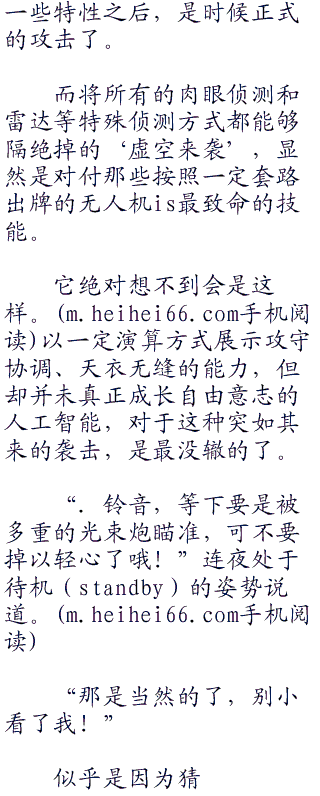 一些特性之后，是时候正式
的攻击了。
而将所有的肉眼侦测和
雷达等特殊侦测方式都能够
隔绝掉的‘虚空来袭’，显
然是对付那些按照一定套路
出牌的无人机is最致命的技
能。
它绝对想不到会是这
样。(m.heihei66.com手机阅
读)以一定演算方式展示攻守
协调、天衣无缝的能力，但
却并未真正成长自由意志的
人工智能，对于这种突如其
来的袭击，是最没辙的了。
“．铃音，等下要是被
多重的光束炮瞄准，可不要
掉以轻心了哦！”连夜处于
待机（standby）的姿势说
道。(m.heihei66.com手机阅
读)
“那是当然的了，别小
看了我！”
似乎是因为猜